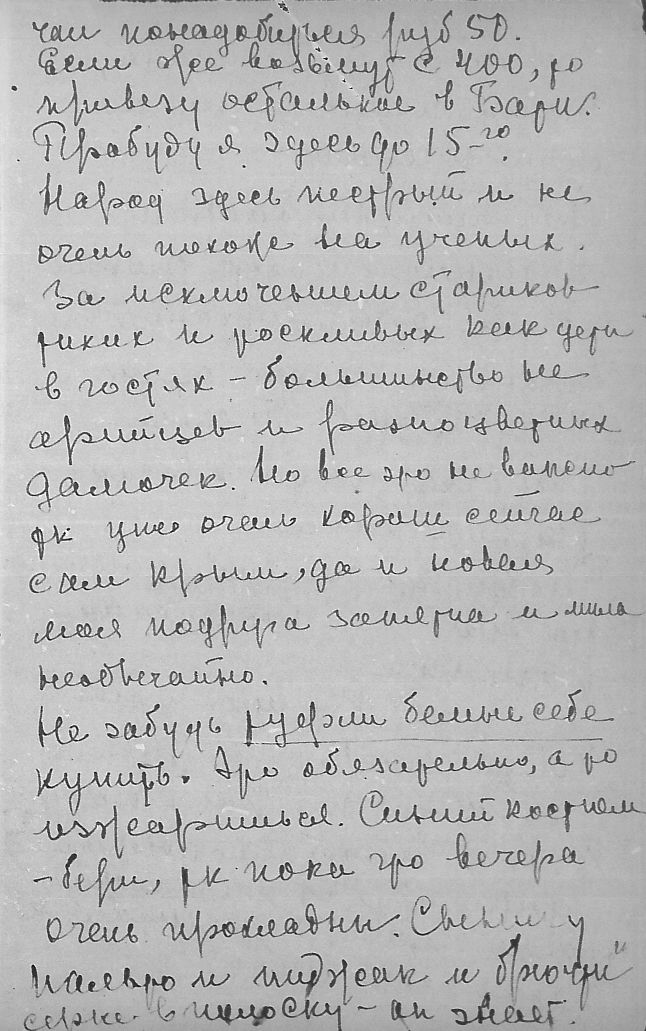 чаи понадобится руб 50.
Если же возьмут с 400, то
привезу остальные в Батум.
Пробуду я здесь до 15-го.
Народ здесь пестрый и не
очень похоже на ученых.
За исключением стариков
тихих и тоскливых как дети
в гостях – большинство не
арийцев и разноцветных
дамочек. Но все это не важно
тк уже очень хорош сейчас
сам Крым, да и новая
моя подруга занятна и мила
необычайно.
Не забудь туфли белые себе
купить. Это обязательно, а то
изжаришься. Синий костюм
– бери, тк пока что вечера
очень прохладны.
пальто и пиджак и брюки
в полоску – он знает.